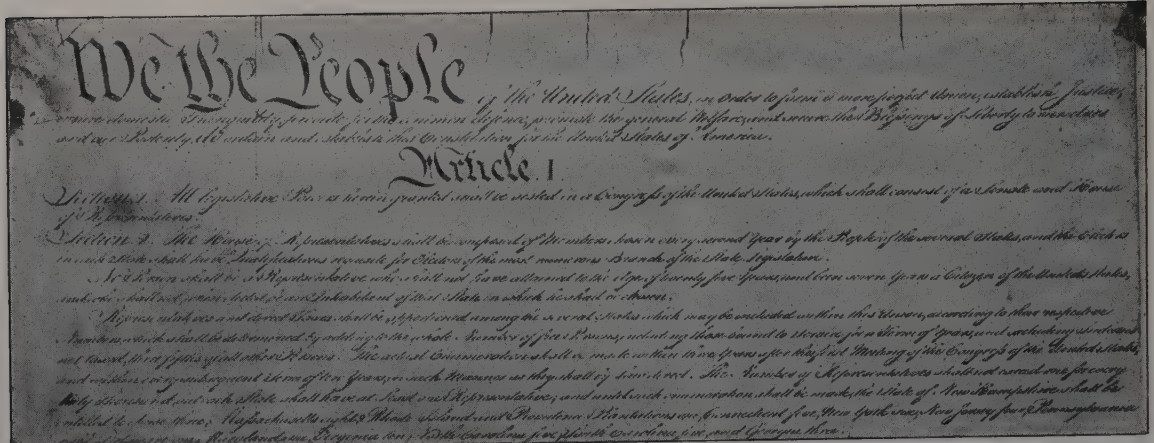 We the People of the United States, in Order to form a more perfect Union, establish Justice,
insure domestic Tranquility, provide for the common defence, promote the general Welfare, and secure the Blessings of Liberty to ourselves
and our Posterity, do ordain and establish this Constitution for the United States of America.
Article. I.
Section. 1. All legislative Powers herein granted shall be vested in a Congress of the United States, which shall consist of a Senate and House
of Representatives.
Section. 2. The House of Representatives shall be composed of Members chosen every second Year by the People of the several States, and the Electors
in each State shall have Qualifications requisite for Electors of the most numerous Branch of the State Legislature.
No Person shall be a Representative who shall not have attained to the Age of twenty five Years, and been seven Years a Citizen of the United States,
and who shall not, when elected, be an Inhabitant of that State in which he shall be chosen.
Representatives and direct Taxes shall be apportioned among the several States which may be included within this Union, according to their respective
Numbers, which shall be determined by adding to the whole Number of free Persons, including those bound to Service for a Term of Years, and excluding Indians
not taxed, three fifths of all other Persons. The actual Enumeration shall be made within three Years after the first Meeting of the Congress of the United States,
and within every subsequent Term of ten Years, in such Manner as they shall by Law direct. The Number of Representatives shall not exceed one for every
thirty Thousand, but each State shall have at Least one Representative; and until such enumeration shall be made, the State of New Hampshire shall be
entitled to chuse three, Massachusetts eight, Rhode Island and Providence Plantations one, Connecticut five, New York six, New Jersey four, Pennsylvania
Maryland six, Virginia ten, North Carolina five, South Carolina five, and Georgia three.